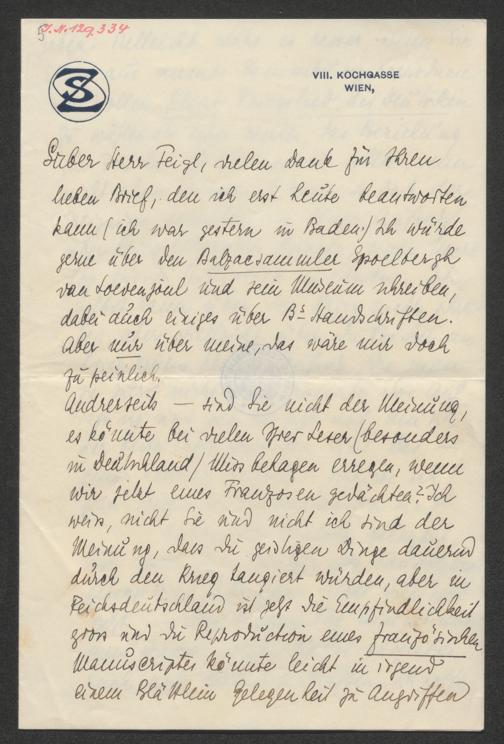 J.N. 129.334
SZ
VIII. KOCHGASSE
WIEN,
Lieber Herr Feigl, vielen Dank für Ihren
lieben Brief, den ich erst heute beantworten
kann (ich war gestern in Baden.) Ich würde
gerne über den Balzacsammler Spoelbergh
van Loevenjoul und sein Museum schreiben,
dabei auch einiges über B's Handschriften.
Aber nur über meine, das wäre mir doch
zu peinlich.
Andrerseits — sind Sie nicht der Meinung,
es könnte bei vielen Ihrer Leser (besonders
in Deutschland) Missbehagen erregen, wenn
wir jetzt eines Franzosen gedächten? Ich
weiss, nicht Sie und nicht ich sind der
Meinung, dass die geistigen Dinge dauernd
durch den Krieg tangiert würden, aber in
Reichsdeutschland ist jetzt die Empfindlichkeit
gross und die Reproduction eines französischen
Manuscriptes könnte leicht in irgend
einem Blättlein Gelegenheit zu Angriffen